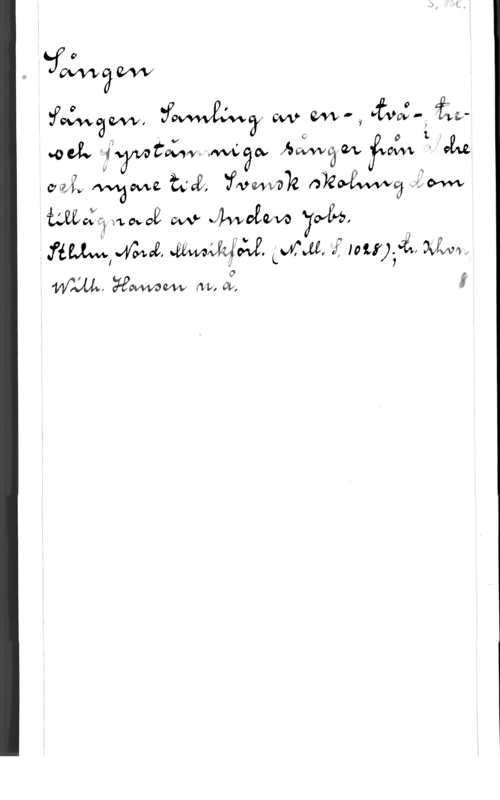 Sången
Sången. Samling av en-, två-, tre-
och fyrstämmiga sånger från äldre
och nyare tid. Svensk skolungdom
tillägnad av Anders Jobs.
Sthlm, Nord. Musikförl. (N.M.S. 1028); tr. Khvn,
Wilh. Hansen u. å. 8